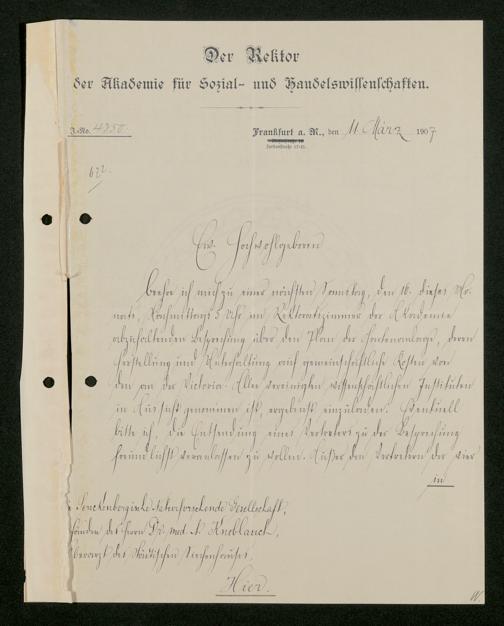 Der Rektor
der Akademie für Sozial- und Handelswissenschaften.
J.-No. 4850.
Frankfurt a. M., den 11. März 1907
672.
Ew. Hochwohlgeboren
beehre ich mich zu einer nächsten Samstag, den 16. dieses Mo-
nats, Nachmittags 5 Uhr im Rektoratszimmer der Akademie
abzuhaltenden Besprechung über den Plan der Gartenanlage, deren
Herstellung und Unterhaltung auf gemeinschaftliche Kosten von
den an der Victoria-Allee vereinigten wissenschaftlichen Instituten
in Aussicht genommen ist, ergebenst einzuladen. Eventuell
bitte ich, die Entsendung eines Vertreters zu der Besprechung
freundlichst veranlassen zu wollen. Außer den Vertretern der vier
in
Senckenbergische Naturforschende Gesellschaft,
Händen des Herrn Dr. med. A. Knoblauch,
berarzt des Städtischen Siechenhauses,
Hier.